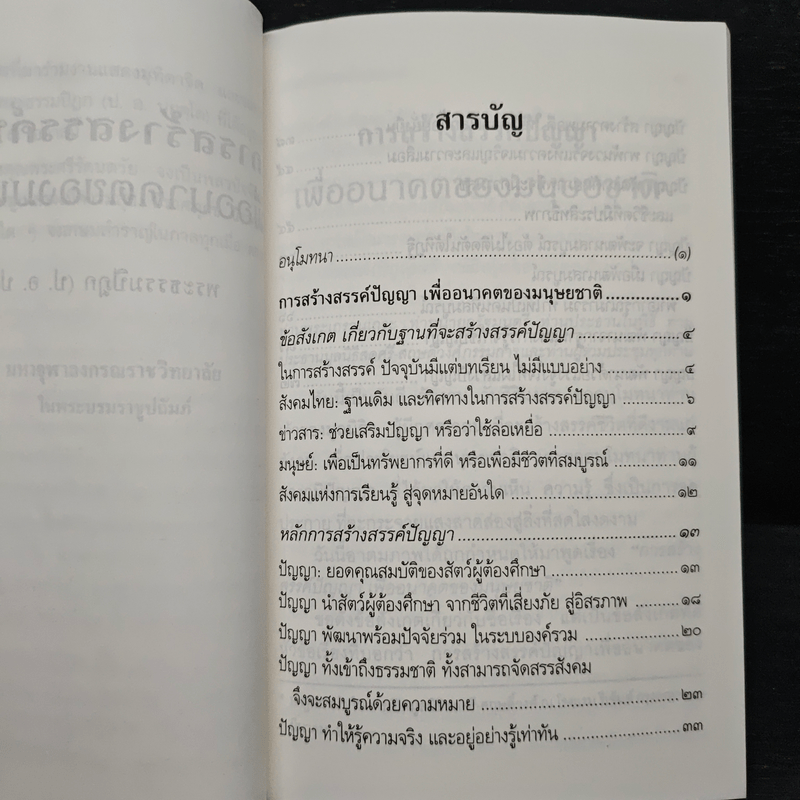 สารบัญ
อนุโมทนา ........................ (๑)
การสร้างสรรค์ปัญญา เพื่ออนาคตของมนุษยชาติ ............... ๑
ข้อสังเกต เกี่ยวกับฐานที่จะสร้างสรรค์ปัญญา ..................... ๔
ในการสร้างสรรค์ ปัจจุบันมีแต่บทเรียน ไม่มีแบบอย่าง ............... ๔
สังคมไทย: ฐานเดิม และทิศทางในการสร้างสรรค์ปัญญา ............ ๖
ข่าวสาร: ช่วยเสริมปัญญา หรือว่าใช้ล่อเหยื่อ ........................ ๙
มนุษย์: เพื่อเป็นทรัพยากรที่ดี หรือเพื่อมีชีวิตที่สมบูรณ์ ............ ๑๑
สังคมแห่งการเรียนรู้ สู่จุดหมายอันใด ........................ ๑๒
หลักการสร้างสรรค์ปัญญา ........................ ๑๓
ปัญญา: ยอดคุณสมบัติของสัตว์ผู้ต้องศึกษา ..................... ๑๓
ปัญญา นำสัตว์ผู้ต้องศึกษา จากชีวิตที่เสี่ยงภัย สู่อิสรภาพ ......... ๑๘
ปัญญา พัฒนาพร้อมปัจจัยร่วม ในระบบองค์รวม .................. ๒๐
ปัญญา ทั้งเข้าถึงธรรมชาติ ทั้งสามารถจัดสรรสังคม
จึงจะสมบูรณ์ด้วยความหมาย ........................ ๒๓
ปัญญา ทำให้รู้ความจริง และอยู่อย่างรู้เท่าทัน .................. ๓๓